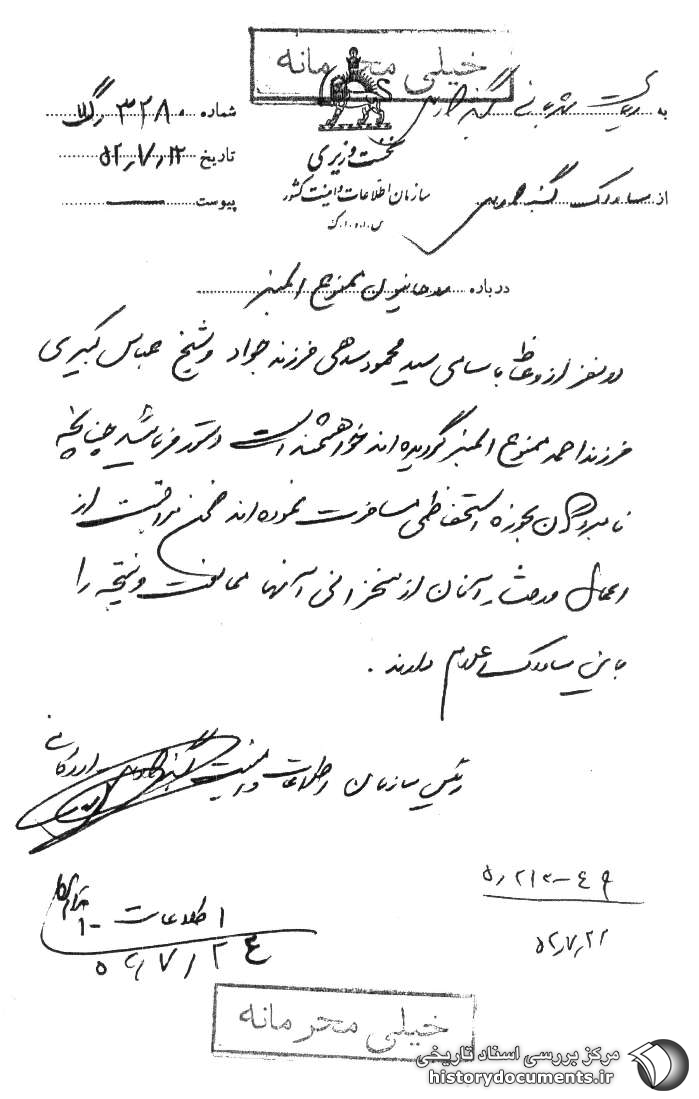 خیلی محرمانه
به ریاست شهربانی گنبد کاوس
شماره ۳۲۸۰
نخست وزیری
تاریخ ۵۲٫۷٫۱۲
سازمان اطلاعات و امنیت کشور
از ساواک گنبد کاوس
پیوست
س.ا.و.ا.ک
درباره روحانیون ممنوع المنبر
دو نفر از وعاظ باسامی سید محمود سدهی فرزند جواد و شیخ عباس کبیری
فرزند احمد ممنوع المنبر گردیده اند خواهشمند است دستور فرمائید چنانچه
نامبردگان بحوزه استحفاظی مسافرت نموده اند ضمن مراقبت از
اعمال و رفتار آنان از سخنرانی آنها ممانعت و نتیجه را
باین ساواک اعلام دارند .
رئیس سازمان اطلاعات و امنیت گنبد کاوس
۵٫۲۱۳-۴۹
اطلاعات
۱-
۵۲٫۷٫۲۲
۵۲/۷/۲۴
خیلی محرمانه
مرکز بررسی اسناد تاریخی
historydocuments.ir